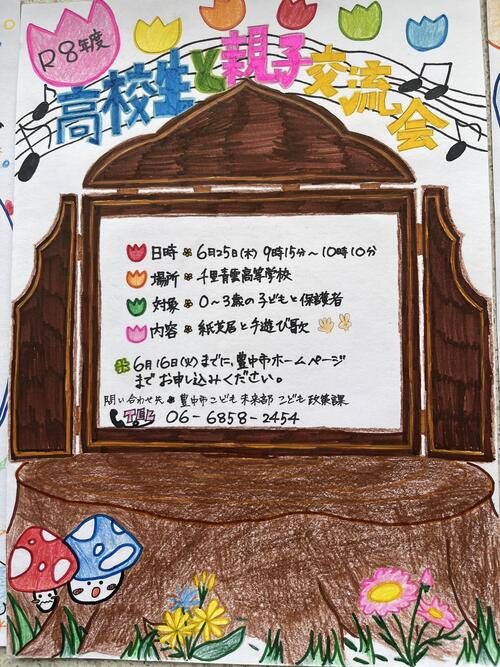 R8年度
高校生と親子交流会
日時 6月25日(木) 9時15分〜10時10分
場所 千里青雲高等学校
対象 0〜3歳の子どもと保護者
内容 紙芝居と手遊び歌
6月16日(火)までに、豊中市ホームページ
までお申し込みください。
問い合わせ先 豊中市こども未来部こども政策課
TEL 06-6858-2454